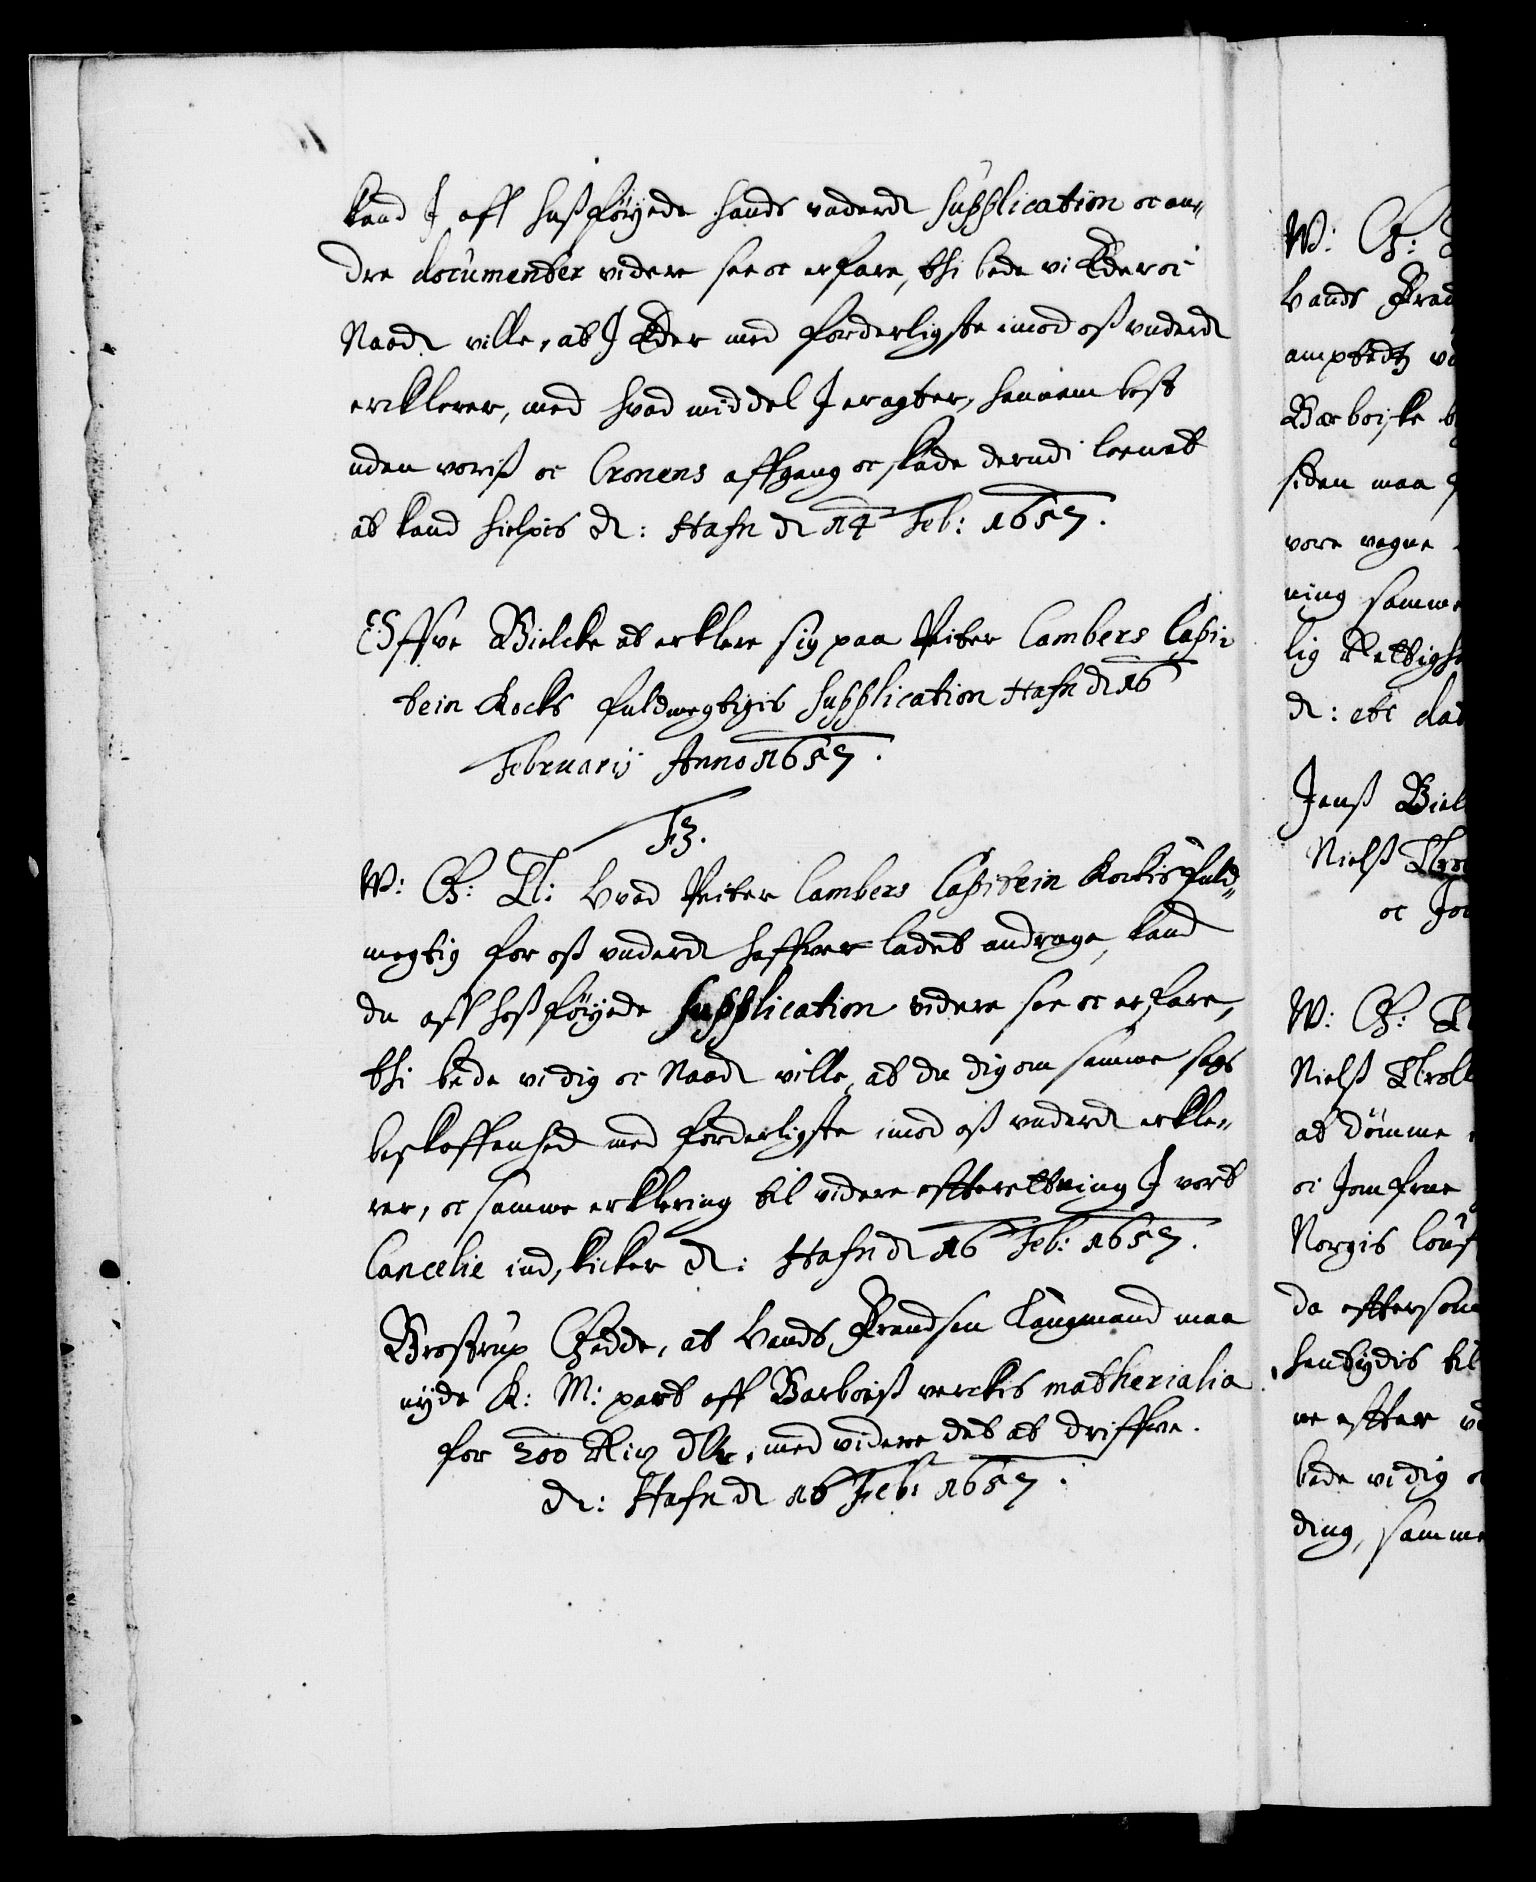 kand I aff hoßføyede hands underd: Supplication oc an-
dre documenter videre see oc erfare, thi bede vi Eder oc
Naad: ville, at I Eder med forderligste imod oß underd:
ercklerer, med hvad middel I eragter, hannem best
uden voriß oc Cronens affgang oc skade derudi
at kand hielpis d: Hafn d 14 Feb: 1657.
Offve Bielcke at erklere sig paa Peiter Lambers Capi-
tein Kocks fuldmegtigis Supplication Hafn d 16
Februarij Anno 1657.
F3.
W: G: T: Hvad Peiter Lambers Capitein Kockis fuld-
megtig for oß underd: haffver ladet andrage, kand
du aff hoßføyede Supplication videre see oc erfare,
thi bede vi dig oc Naad: ville, at du dig om samme sags
beskaffenhed med forderligste imod oß underd: erkle-
rer, oc samme erklering til videre effterretning I vort
Cancelie indskicker d: Hafn d 16 Feb: 1657.
Brostrup Gedde, at Hands Frandsen Laugmand maa
nyde K: M: part aff Barboeß verckis matherialia
for 200 Rix dlr, med videre det at driffve.
d: Hafn d 16 Feb: 1657.
W: G:
Hands Fran
amptedtz
Barboiske
siden maa
vore vegne
ning samme
lig Rettighe
d: etc dat
Jenß Biel
Nielß Tro
oc Jo
W: G: T
Nielß Troll
at dømme
oc Jomfrue
Norgis
da effterson
henbydis til
ne effter
bede vi dig o
ding, samme